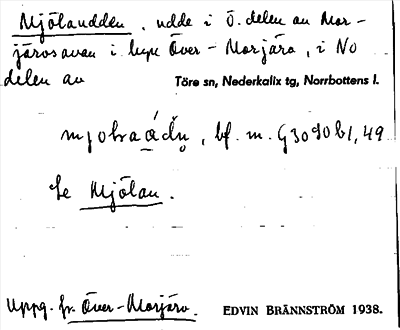 Mjölaudden, udde i Ö. delen av Mor-
järvsavan i byn Över-Morjärv, i NO
delen av Töre sn, Nederkalix tg, Norrbottens l.
bf. m. G 30 90 b 1, 49
Se Mjölan.
Uppg. fr. Över-Morjärv. EDVIN BRÄNNSTRÖM 1938.